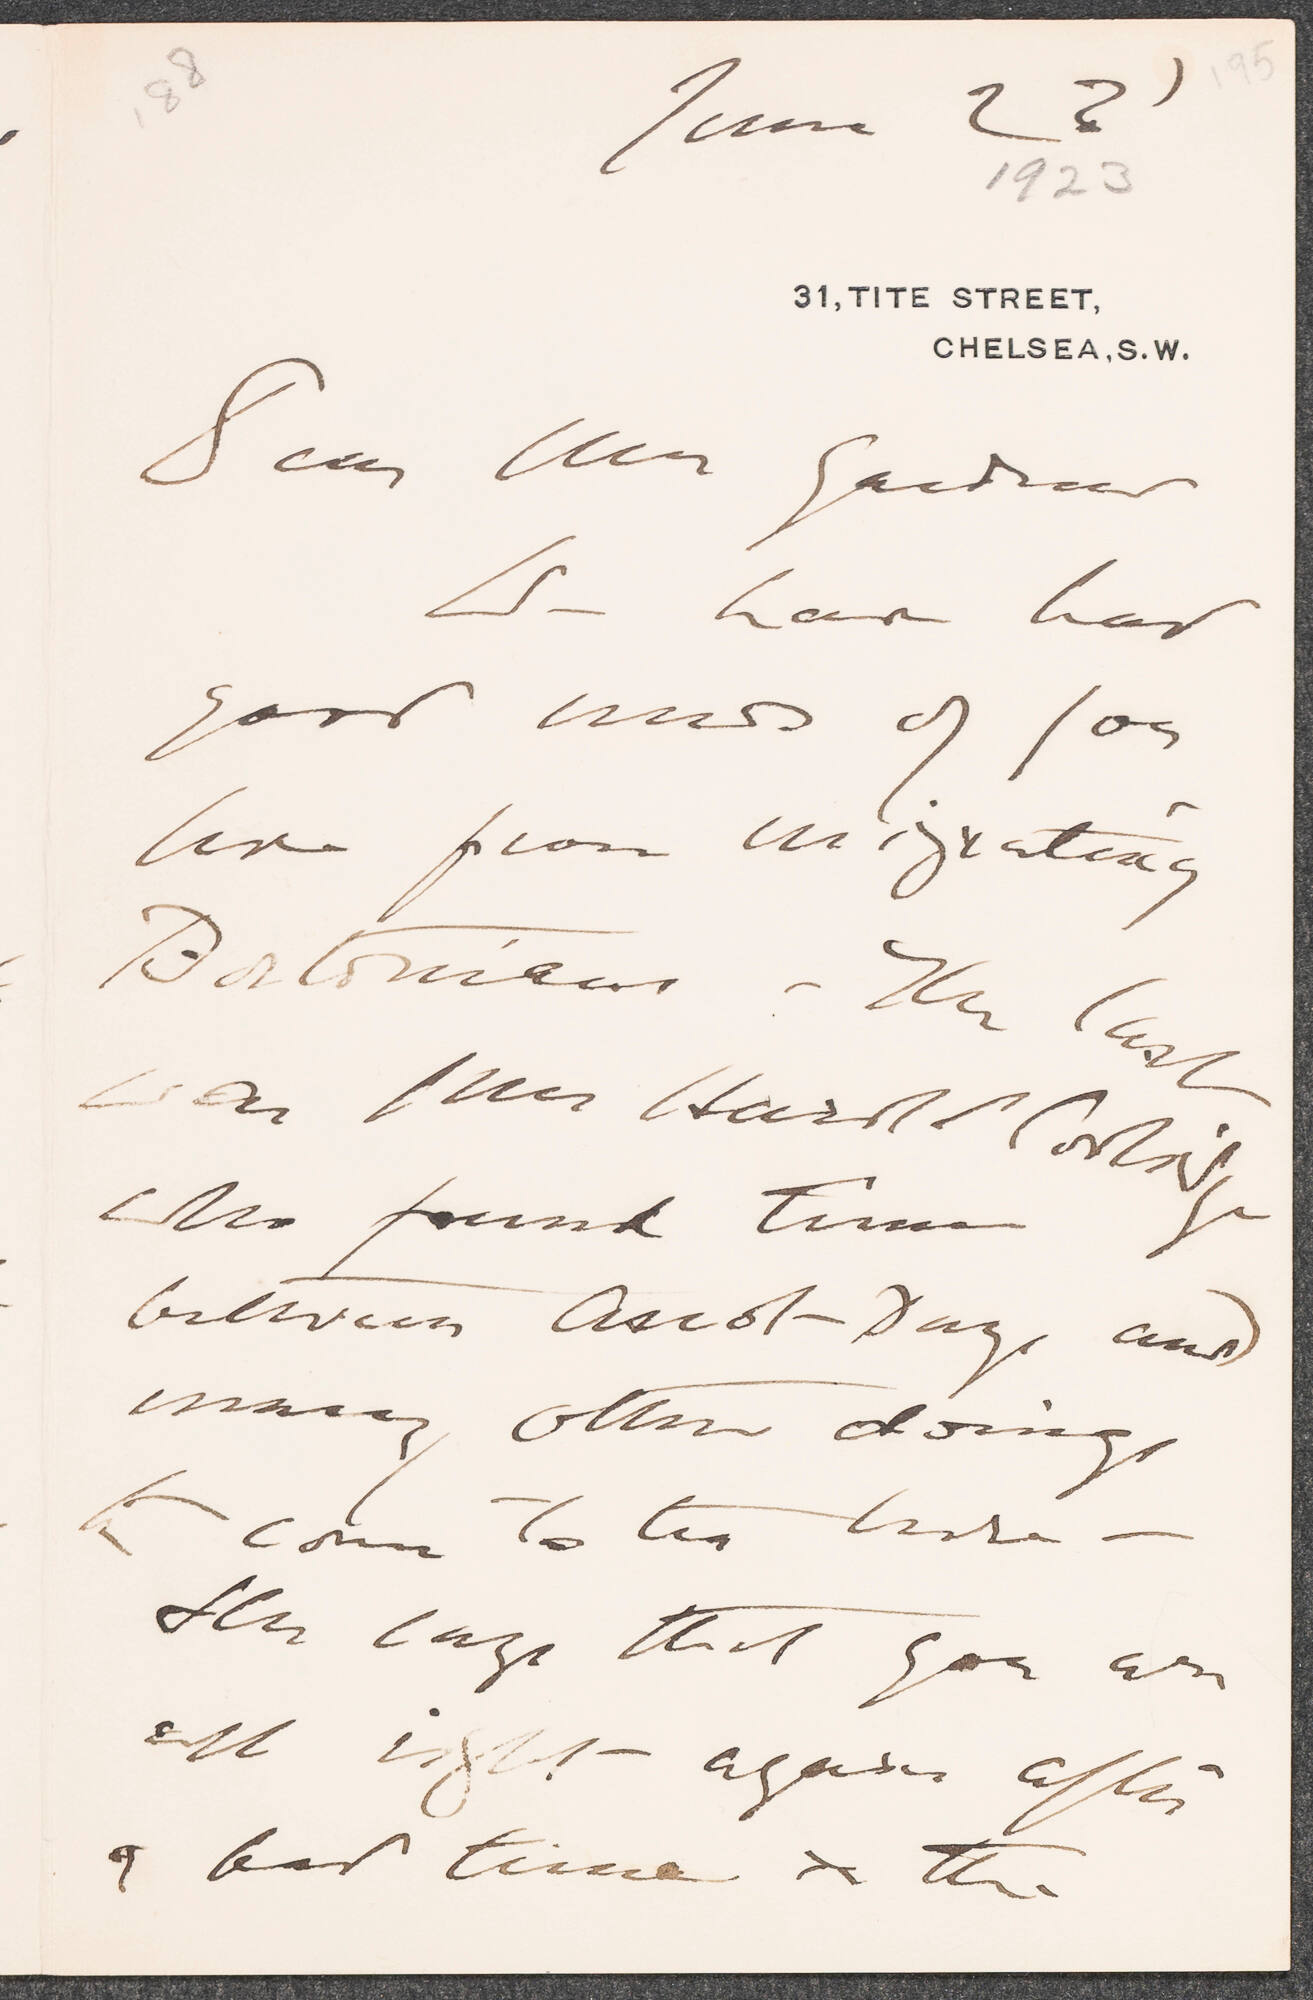 188
195
June 23
1923
31, TITE STREET,
CHELSEA, S.W.
Dear Mrs Gardner
We have had
good news of you
here from migrating
Bostonians - The last
was Mrs Harold Coolidge
who found time
between Ascot Days and
many other doings
to come to tea here —
She says that you are
all right again after
a bad time & the